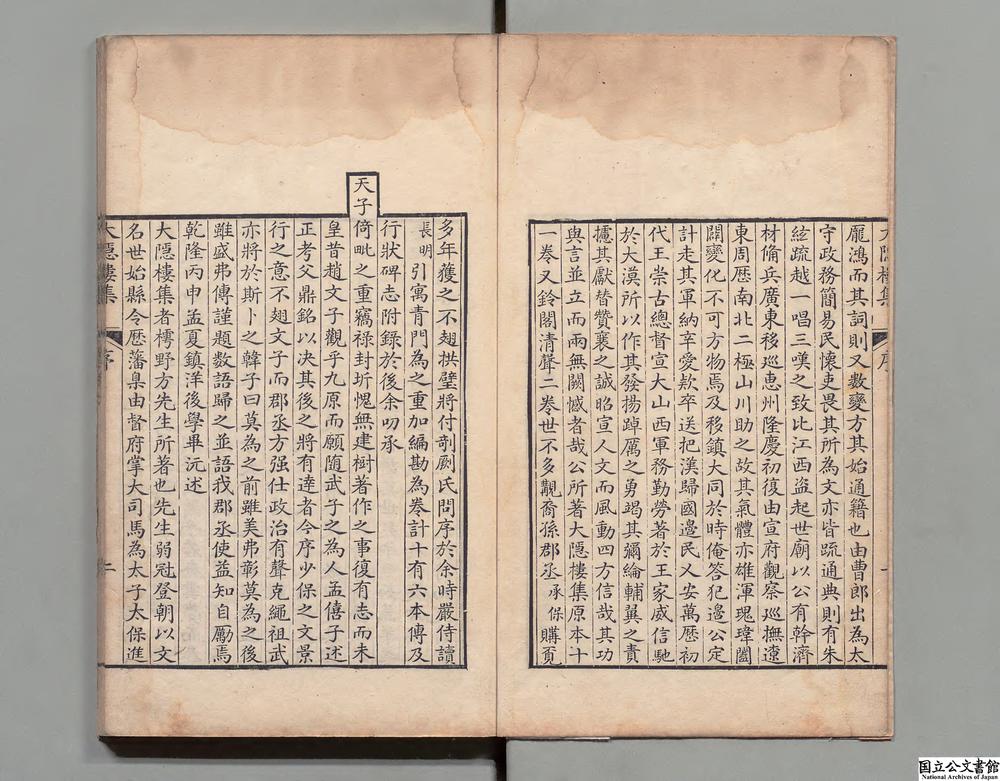 龎鴻而其詞則又數變方其始通籍也由曹郎出為太
守政務簡易民懷吏畏其所為文亦皆疏通典則有朱
絃疏越一唱三嘆之致比江西盜起世廟以公有幹濟
材俻兵廣東移巡惠州隆慶初復由宣府觀察巡撫遼
東周歷南北二極山川助之故其氣體亦雄渾瑰瑋闔
闢變化不可方物焉及移鎮大同於時俺答犯邉公定
計走其軍納㚔愛欵卒送把漢歸國邉民乂安萬歷初
代王崇古總督宣大山西軍務勤勞著於王家威信馳
於大漠所以作其發揚踔厲之勇竭其彌綸輔翼之責
攄其獻替贊襄之誠昭宣人文而風動四方信哉其功
與言並立而兩無闕憾者哉公所著大隠樓集原本十
一卷又鈴閣清聲二卷世不多覯裔孫郡丞承保購覔
大隠樓集
序
一
多年獲之不翅拱璧將付剞劂氏問序於余時嚴侍讀
長明引寓青門為之重加編勘為卷計十有六本傳及
行狀碑志附錄於後余叨承
天子倚毗之重竊祿封圻愧無建樹著作之事復有志而未
皇昔趙文子觀乎九原而願随武子之為人孟僖子述
正考父鼎銘以决其後之將有達者今序少保之文景
行之意不翅文子而郡丞方强仕政治有聲克繩祖武
亦將於斯卜之韓子曰莫為之前雖美弗彰莫為之後
雖盛弗傳謹題数語歸之並語我郡丞使益知自勵焉
乾隆丙申孟夏鎮洋後學畢沅述
大隠樓集者樗野方先生所著也先生弱冠登朝以文
名世始縣令歷藩臬由督府掌大司馬為太子太保進
大隠樓集
序
二
国立公文書館
National Archives of Japan